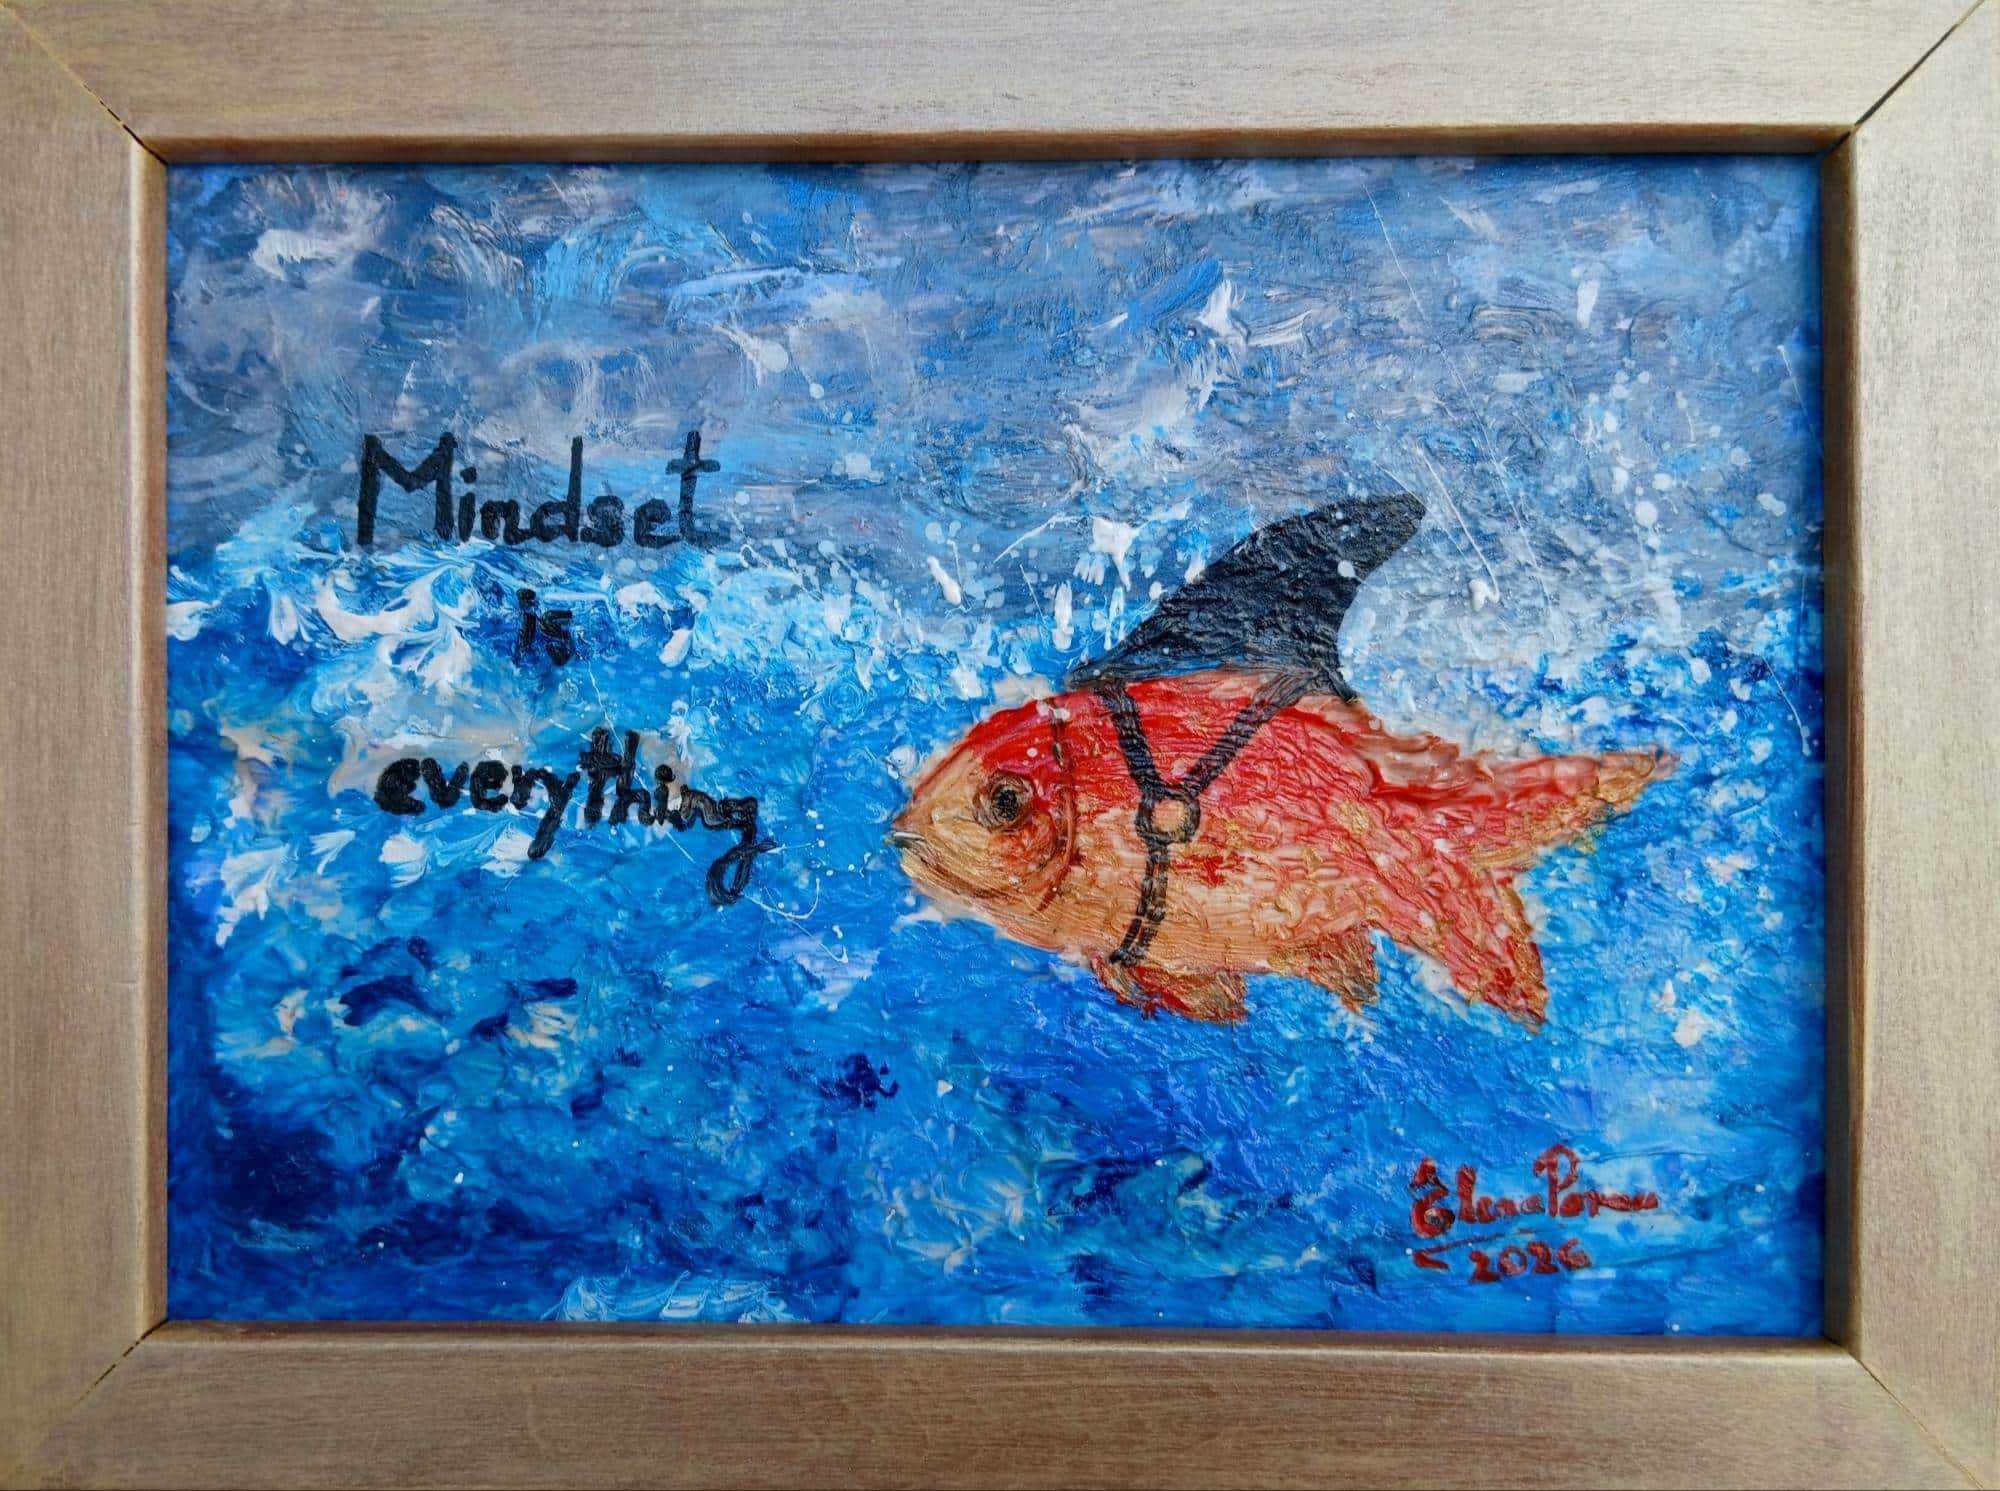 Mindset
is
everything
Elena
2026